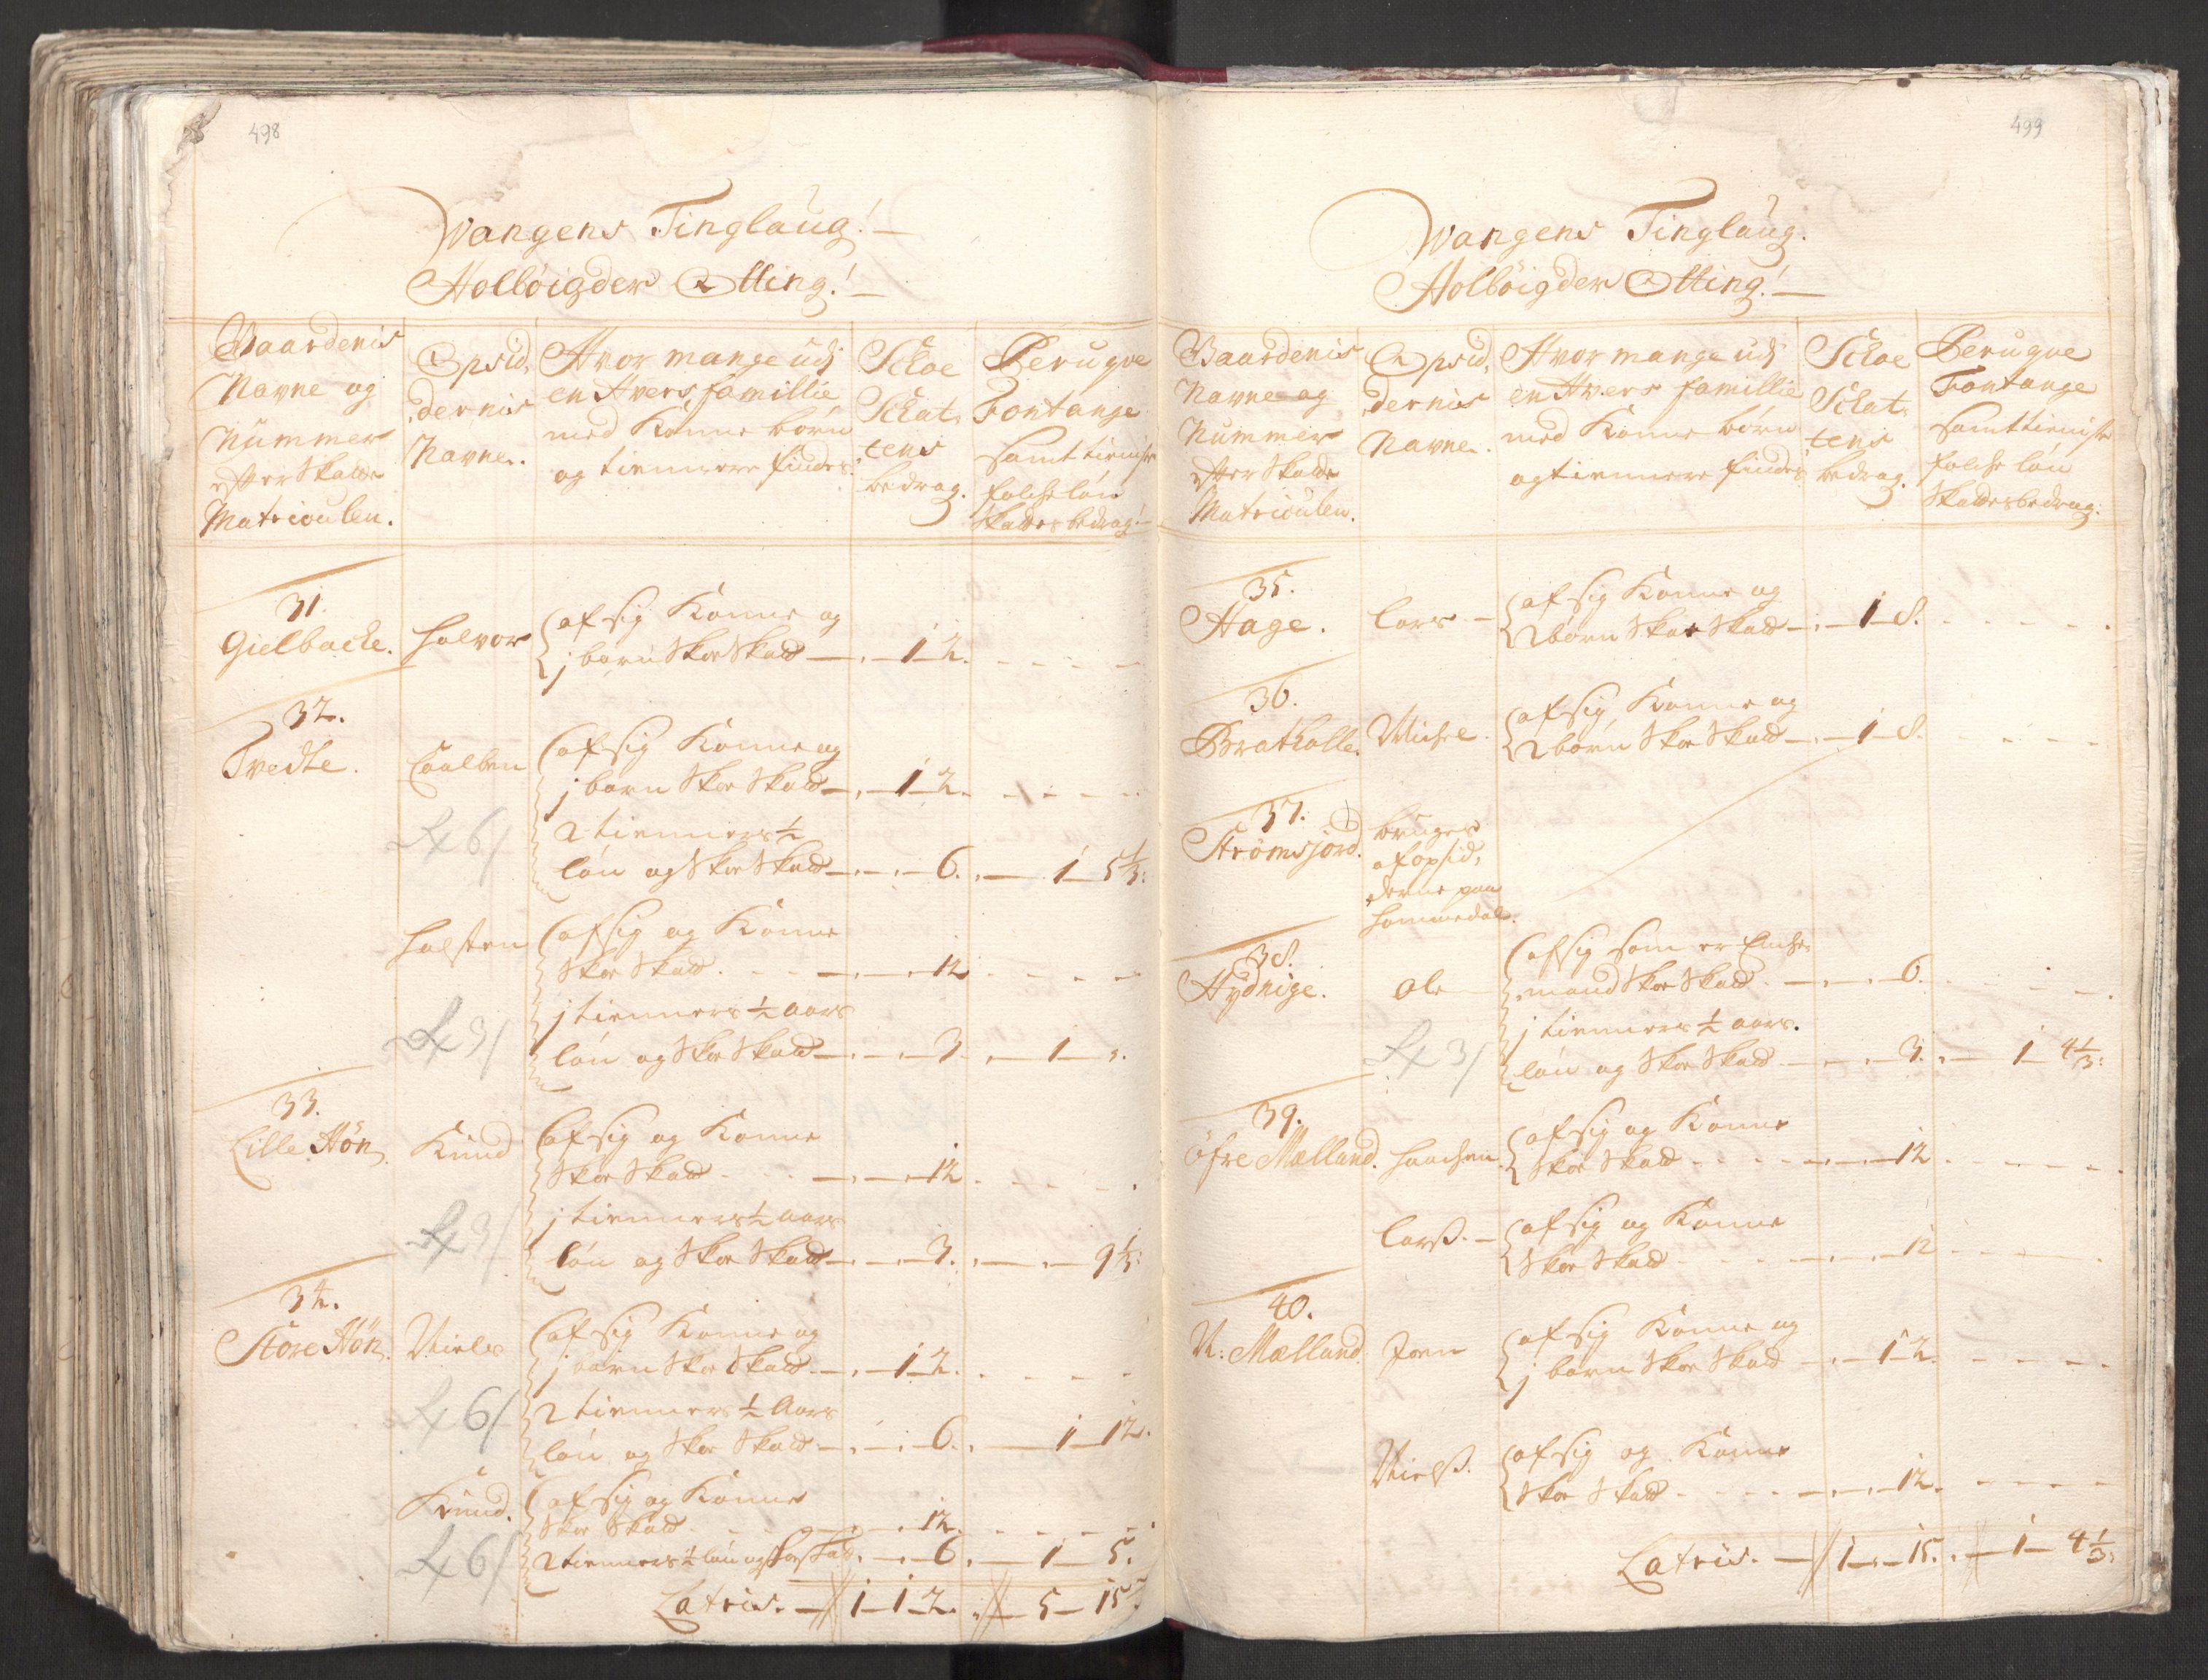 498
Wangens Tinglaug!
Holbøigder Otting!
Gaardenis
Navne og
Nummer
efter Skatte
Matriculen.
Opsid,
dernis
Navne.
Hvor mange udj
en Hvers familie
med Konne børn
og tiennere findes.
Schoe
Schat,
tens
bedrag.
Peruqve
Fontange
samt tieniste
folche løn
Skattes bedrag!
31.
Gielbache.
Halvor
af sig Konne og
j barn Skoe Skatt — 1 — 2.
32.
Tvedte.
Coelben
af sig Konne og
j barn Skoe Skatt — 1 — 2.
2 tienners ½
løn og Skoe Skatt — 6. — 1 — 5⅓:
L 6/
Halsten
af sig og Konne
Skoe Skatt — 12
j tienners ½ aars
løn og Skoe Skatt — 3. — 1 —
L 3/
33.
Lille Høn
Knud
af sig og Konne
Skoe Skatt — 12
j tienners ½ aars
løn og Skoe Skatt — 3. — 9⅓:
L 3/
34.
Store Høn
Niels
af sig Konne og
j barn Skoe Skatt — 1 — 2.
2 tienners ½ Aars
løn og Skoe Skatt — 6. — 1 — 12.
L 6/
Knud.
af sig og Konne
Skoe Skatt — 12.
2 tienners ½ løn og Skoe Skat — 6. — 1 — 5.
L 6/
Lateris. — 1 — 1 — 2. — 5 — 15
499
Wangens Tinglaug.
Holbøigder Otting!
Gaardenis
Navne og
Nummer
efter Skatte
Matriculen.
Opsid,
dernis
Navne.
Hvor mange udj
en Hvers familie
med Konne børn
og tiennere findes
Schoe
Schat,
tens
bedrag.
Peruqve
Fontange
samt tieniste
folche løn
Skattes bedrag:
35.
Hage.
Lars
af sig Konne og
2 børn Skoe Skatt — 1 — 8.
36.
Bratkolle.
Michel
af sig Konne og
2 børn Skoe Skatt — 1 — 8.
37.
Strømsjord.
bruges
af opsid,
derne paa
Hommedal.
38.
Hydnige.
Ole
af sig som er Enche
mand Skoe Skatt — 6.
j tienners ½ aars.
løn og Skoe Skatt — 3. — 1 — 4⅓:
L 3/
39.
Øfre Mælland.
Haachen
af sig og Konne
Skoe Skatt — 12
Larß.
af sig og Konne
Skoe Skatt — 12
40.
N. Mælland.
Joen
af sig Konne og
j barn Skoe Skatt — 1 — 2.
Nielß.
af sig og Konne
Skoe Skatt — 12.
Lateris. — 1 — 15. — 1 — 4⅓: